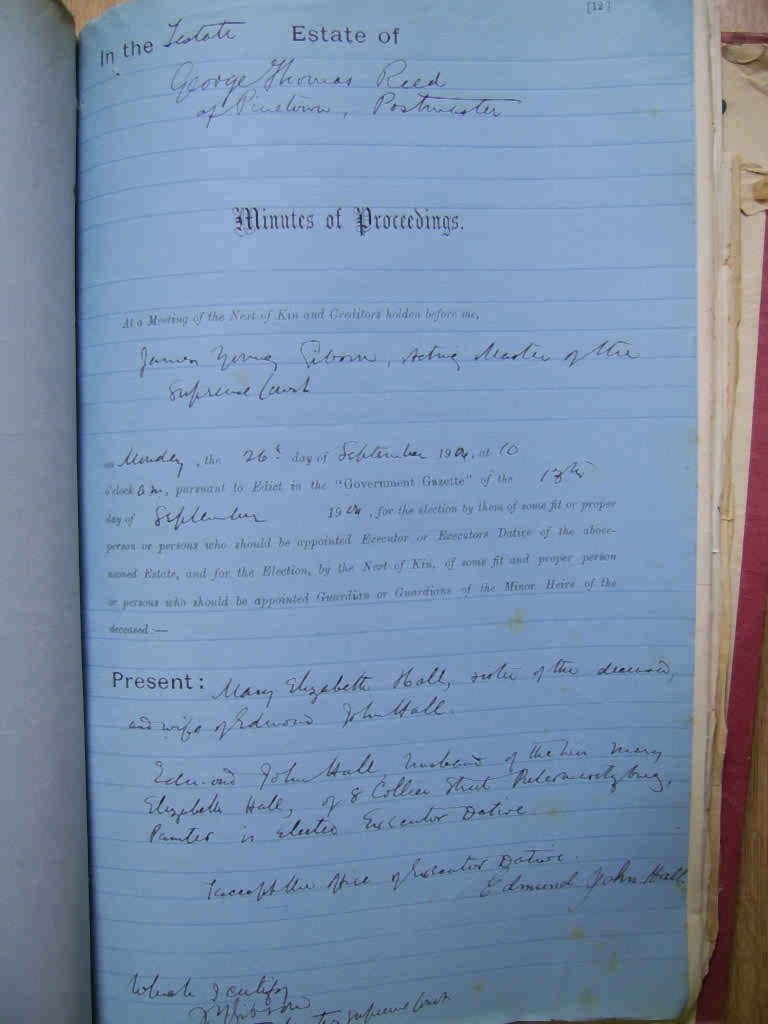 [12]
In the Testate Estate of
George Thomas Reed
of Pinetown, Postmaster
Minutes of Proceedings.
At a Meeting of the Next of Kin and Creditors holden before me,
James Young Gibson, Acting Master of the
Supreme Court
on Monday, the 26th day of September 1904, at 10
o'clock a.m., pursuant to Edict in the "Government Gazette" of the 13th
day of September 1904, for the election by them of some fit or proper
person or persons who should be appointed Executor or Executors Dative of the above-
named Estate, and for the Election, by the Next of Kin, of some fit and proper person
or persons who should be appointed Guardian or Guardians of the Minor Heirs of the
deceased:—
Present: Mary Elizabeth Hall, sister of the deceased,
and wife of Edmund John Hall.
Edmund John Hall husband of the Mary
Elizabeth Hall, of 8 Collier Street Pietermaritzburg,
Painter is elected Executor Dative.
I accept the office of Executor Dative.
Edmund John Hall
Which I certify
JY Gibson
Master Supreme Court